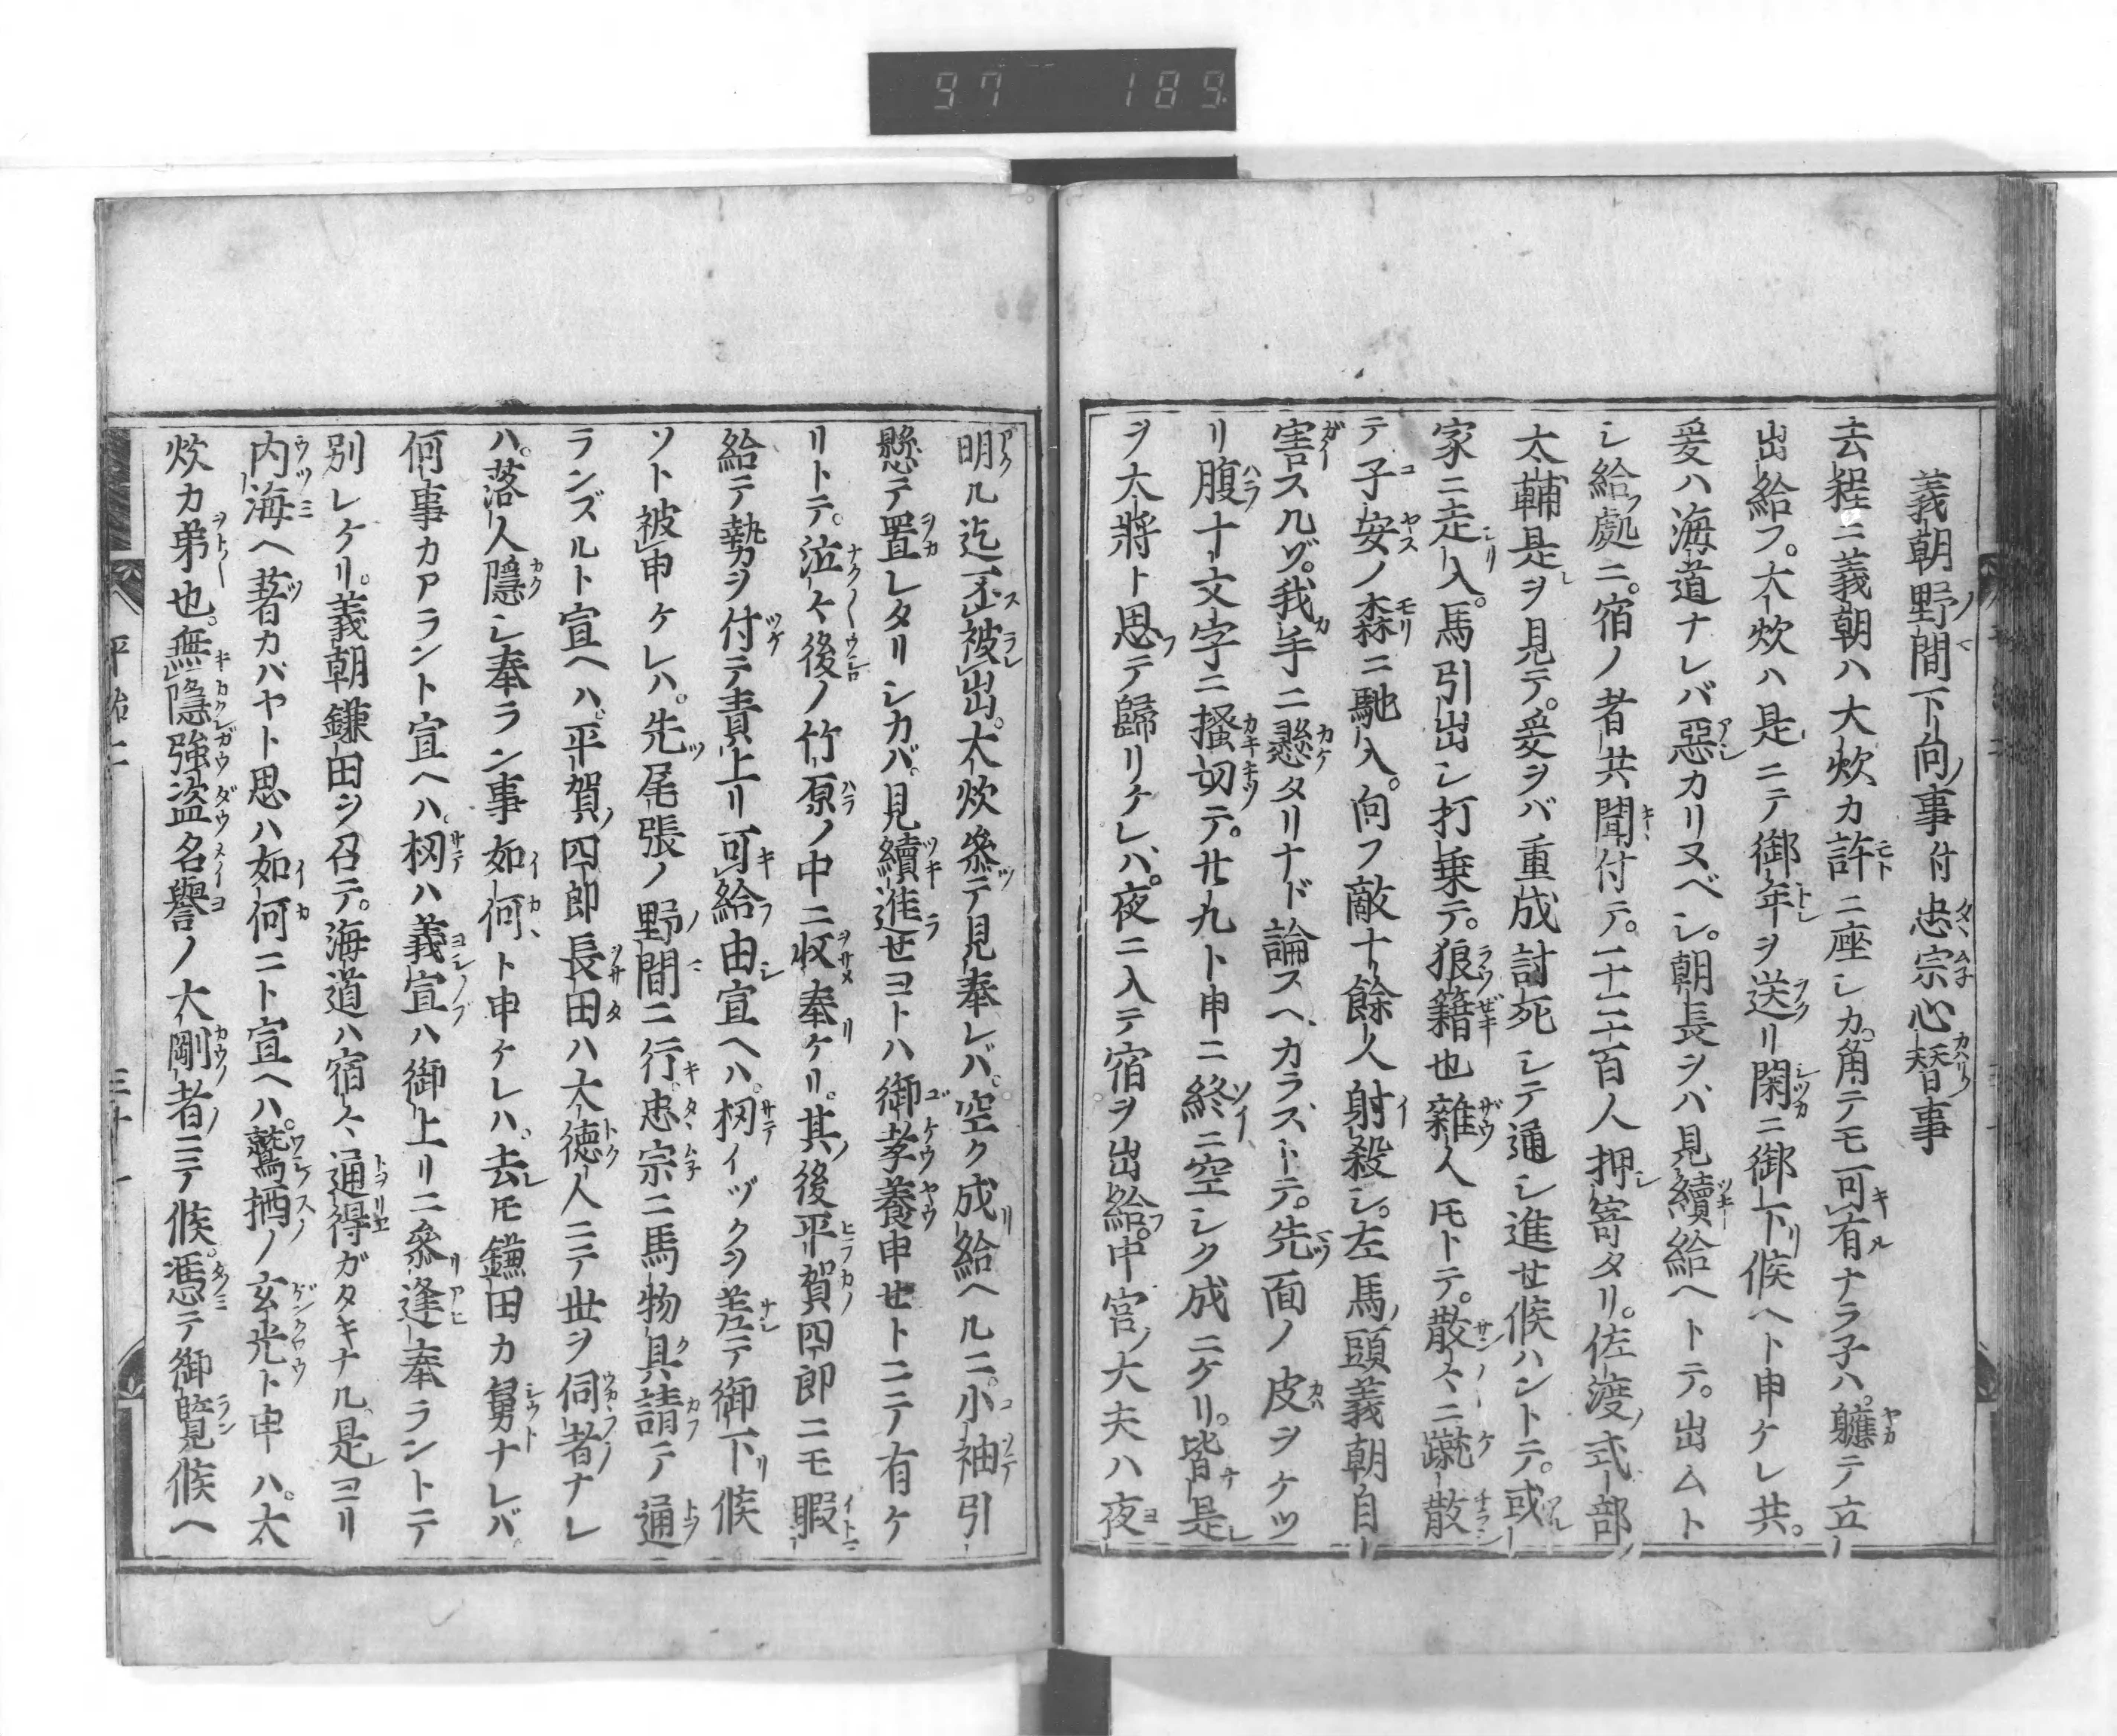 97 189
義朝野間下向事付忠宗心替事
去程ニ義朝ハ大炊カ許ニ座シカ。角テモ可有ナラ子ハ。軈テ立
出給フ。大炊ハ是ニテ御年ヲ送リ閑ニ御下リ候ヘト申ケレ共。
爰ハ海道ナレバ惡カリヌベシ。朝長ヲハ見續給ヘトテ。出ムト
シ給フ處ニ。宿ノ者共聞付テ。二三百人押寄タリ。佐渡式部
太輔是ヲ見テ。爰ヲバ重成討死シテ通シ進セ候ハントテ。或
家ニ走入。馬引出シ打乗テ。狼籍也雜人𪜈トテ。散々ニ蹴散
テ子安ノ森ニ馳入。向フ敵十餘人射殺シ。左馬頭義朝自
害スルゾ。我手ニ懸タリナド論スヘカラストテ。先面ノ皮ヲケツ
リ腹十文字ニ搔切テ。廿九ト申ニ終ニ空シク成ニケリ。皆是
ヲ大將ト思テ歸リケレハ。夜ニ入テ宿ヲ出給フ。中宮大夫ハ夜
明ル迄不被出。大炊參テ見奉レバ。空ク成給ヘルニ。小袖引
懸テ置レタリシカバ。見續進セヨトハ御孝養申せトニテ有ケ
リトテ。泣々後ノ竹原ノ中ニ收奉ケリ。其後平賀四郎ニモ暇
給テ勢ヲ付テ責上リ可給由宣ヘハ。扨イヅクヲ差テ御下リ候
ソト被申ケレハ。先尾張ノ野間ニ行。忠宗ニ馬物具請テ通
ランズルト宣ヘハ。平賀四郎長田ハ大徳人ニテ世ヲ伺者ナレ
ハ。落人隱シ奉ラン事如何ト申ケレハ。去𪜈鎌田カ舅ナレバ。
何事カアラント宣ヘハ。扨ハ義宣ハ御上リニ參逢奉ラントテ
別レケリ。義朝鎌田ヲ召テ。海道ハ宿々通得ガタキナル。是ヨリ
内海ヘ著カバヤト思ハ如何ニト宣ヘハ。鷲栖ノ玄光ト申ハ。大
炊カ弟也。無隱強盗名譽ノ大剛者ニテ候。憑テ御覧候ヘ
平治二 三十一